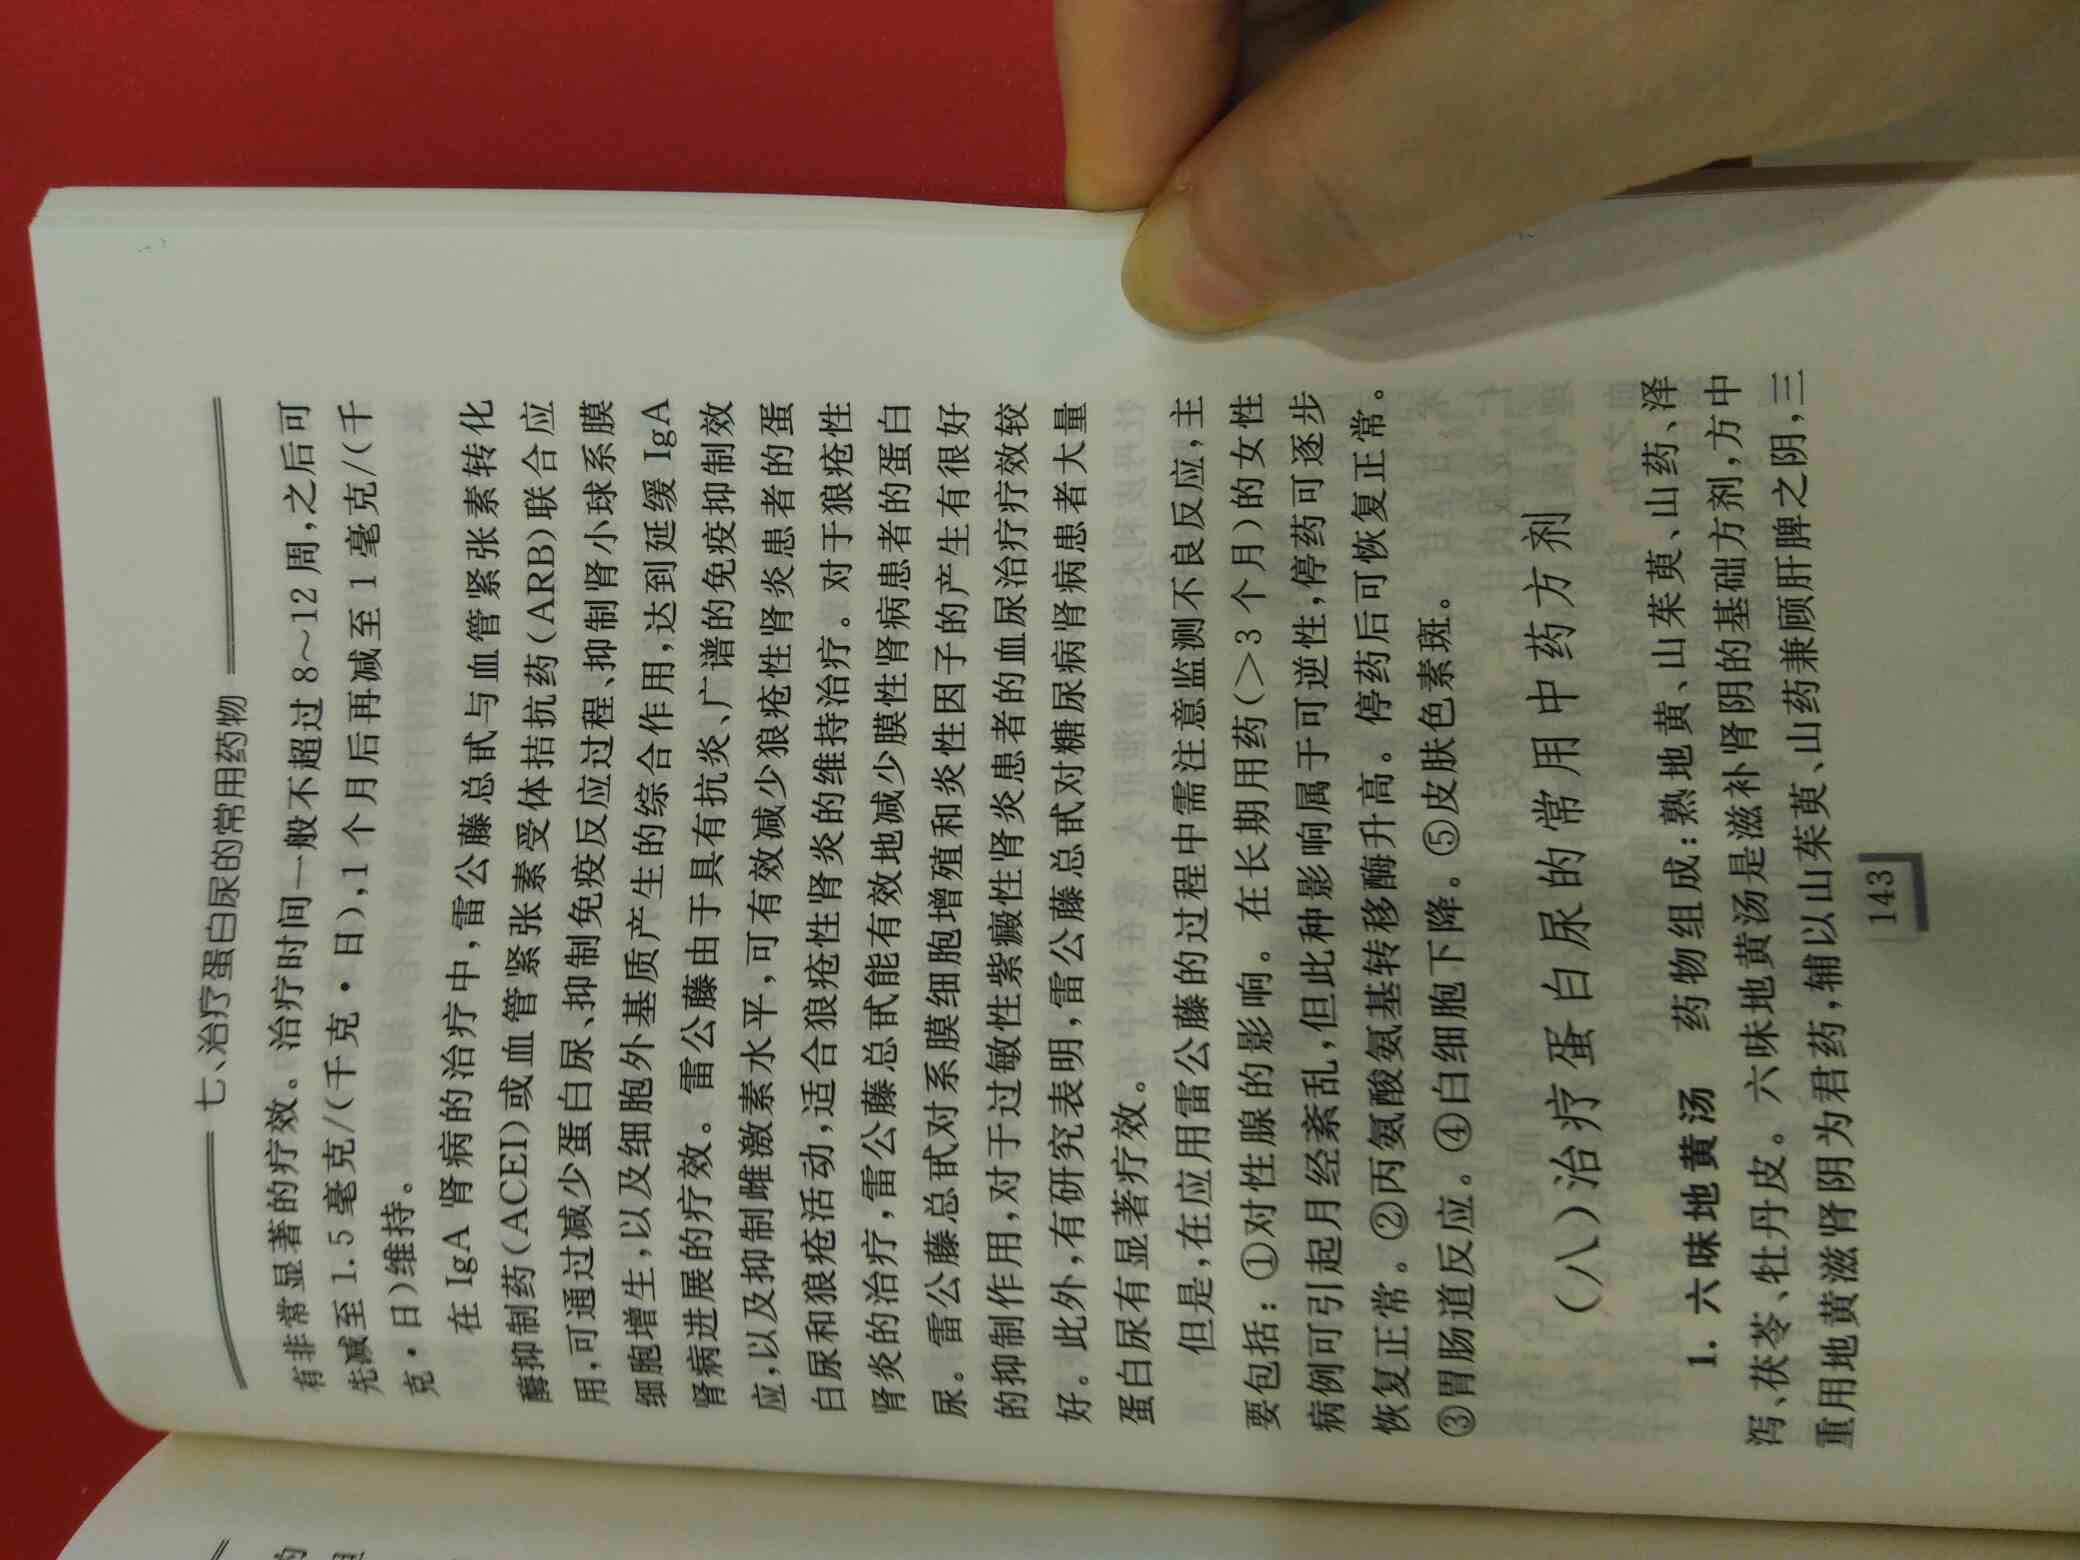 七、治疗蛋白尿的常用药物
有非常显著的疗效。治疗时间一般不超过 8～12 周,之后可
先减至 1.5 毫克/(千克·日),1 个月后再减至 1 毫克/(千
克·日)维持。
在 IgA 肾病的治疗中,雷公藤总甙与血管紧张素转化
酶抑制药(ACEI)或血管紧张素受体拮抗药(ARB)联合应
用,可通过减少蛋白尿、抑制免疫反应过程、抑制肾小球系膜
细胞增生,以及细胞外基质产生的综合作用,达到延缓 IgA
肾病进展的疗效。雷公藤由于具有抗炎、广谱的免疫抑制效
应,以及抑制雌激素水平,可有效减少狼疮性肾炎患者的蛋
白尿和狼疮活动,适合狼疮性肾炎的维持治疗。对于狼疮性
肾炎的治疗,雷公藤总甙能有效地减少膜性肾病患者的蛋白
尿。雷公藤总甙对系膜细胞增殖和炎性因子的产生有很好
的抑制作用,对于过敏性紫癜性肾炎患者的血尿治疗疗效较
好。此外,有研究表明,雷公藤总甙对糖尿病肾病患者大量
蛋白尿有显著疗效。
但是,在应用雷公藤的过程中需注意监测不良反应,主
要包括:①对性腺的影响。在长期用药(>3 个月)的女性
病例可引起月经紊乱,但此种影响属于可逆性,停药可逐步
恢复正常。②丙氨酸氨基转移酶升高。停药后可恢复正常。
③胃肠道反应。④白细胞下降。⑤皮肤色素斑。
(八)治疗蛋白尿的常用中药方剂
1. 六味地黄汤 药物组成:熟地黄、山茱萸、山药、泽
泻、茯苓、牡丹皮。六味地黄汤是滋补肾阴的基础方剂,方中
重用地黄滋肾阴为君药,辅以山茱萸、山药兼顾肝脾之阴,三
143